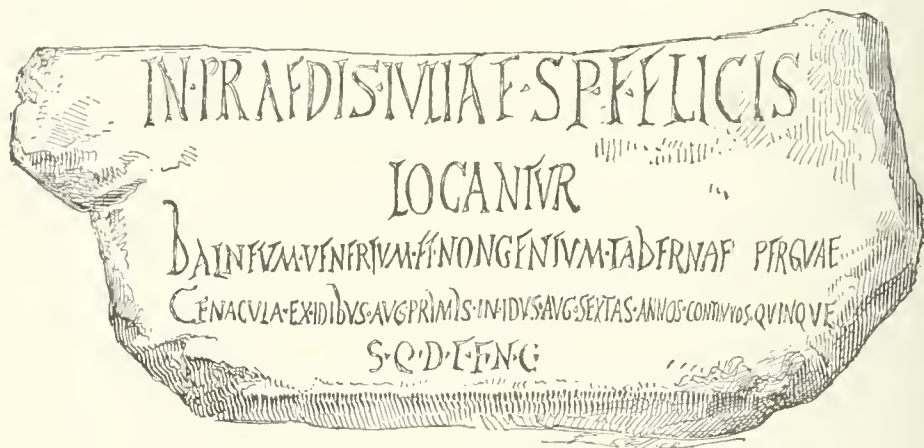 IN·PRAEDIS·IVLIAE·SP·F·FELICIS
LOCANTVR
BALNEVM·VENERIVM·ET·NONGENTVM·TABERNAE PERGVAE
CENACVLA·EX·IDIBVS·AVG·PRIMIS·IN·IDVS·AVG·SEXTAS·ANNOS·CONTINVOS·QVINQVE
S·Q·D·L·E·N·C